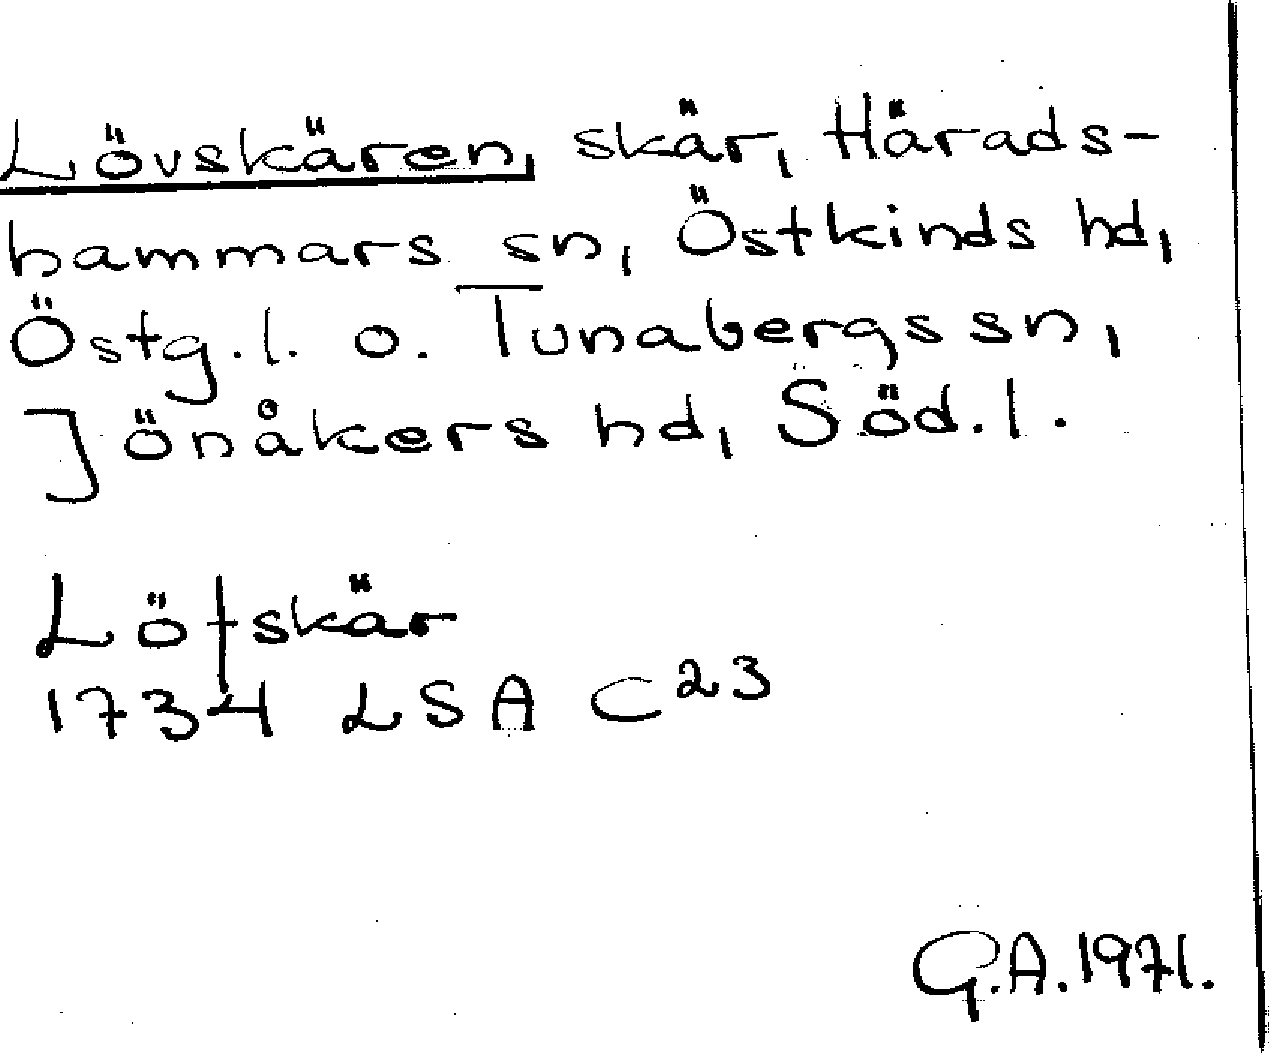 Lövskären, skär, Härads-
hammars sn, Östkinds hd,
Östg.l. o. Tunabergs sn,
Jönåkers hd, Söd.l.
Löfskär
1734 LSA C23
G.A. 1971.